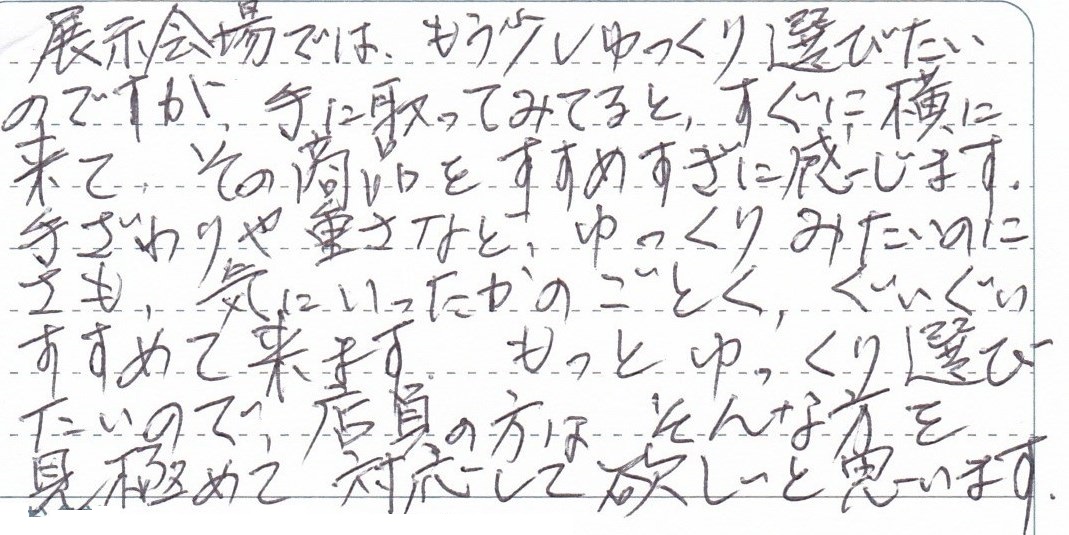 展示会場では、もう少しゆっくり選びたい
のですが、手に取ってみてると、すぐに横に
来て、その商品をすすめすぎに感じます。
手ざわりや重さなど、ゆっくりみたいのに
さも、気にいったかのごとく、ぐいぐい
すすめて来ます。もっとゆっくり選び
たいので、店員の方はそんな方を
見極めて対応して欲しいと思います。